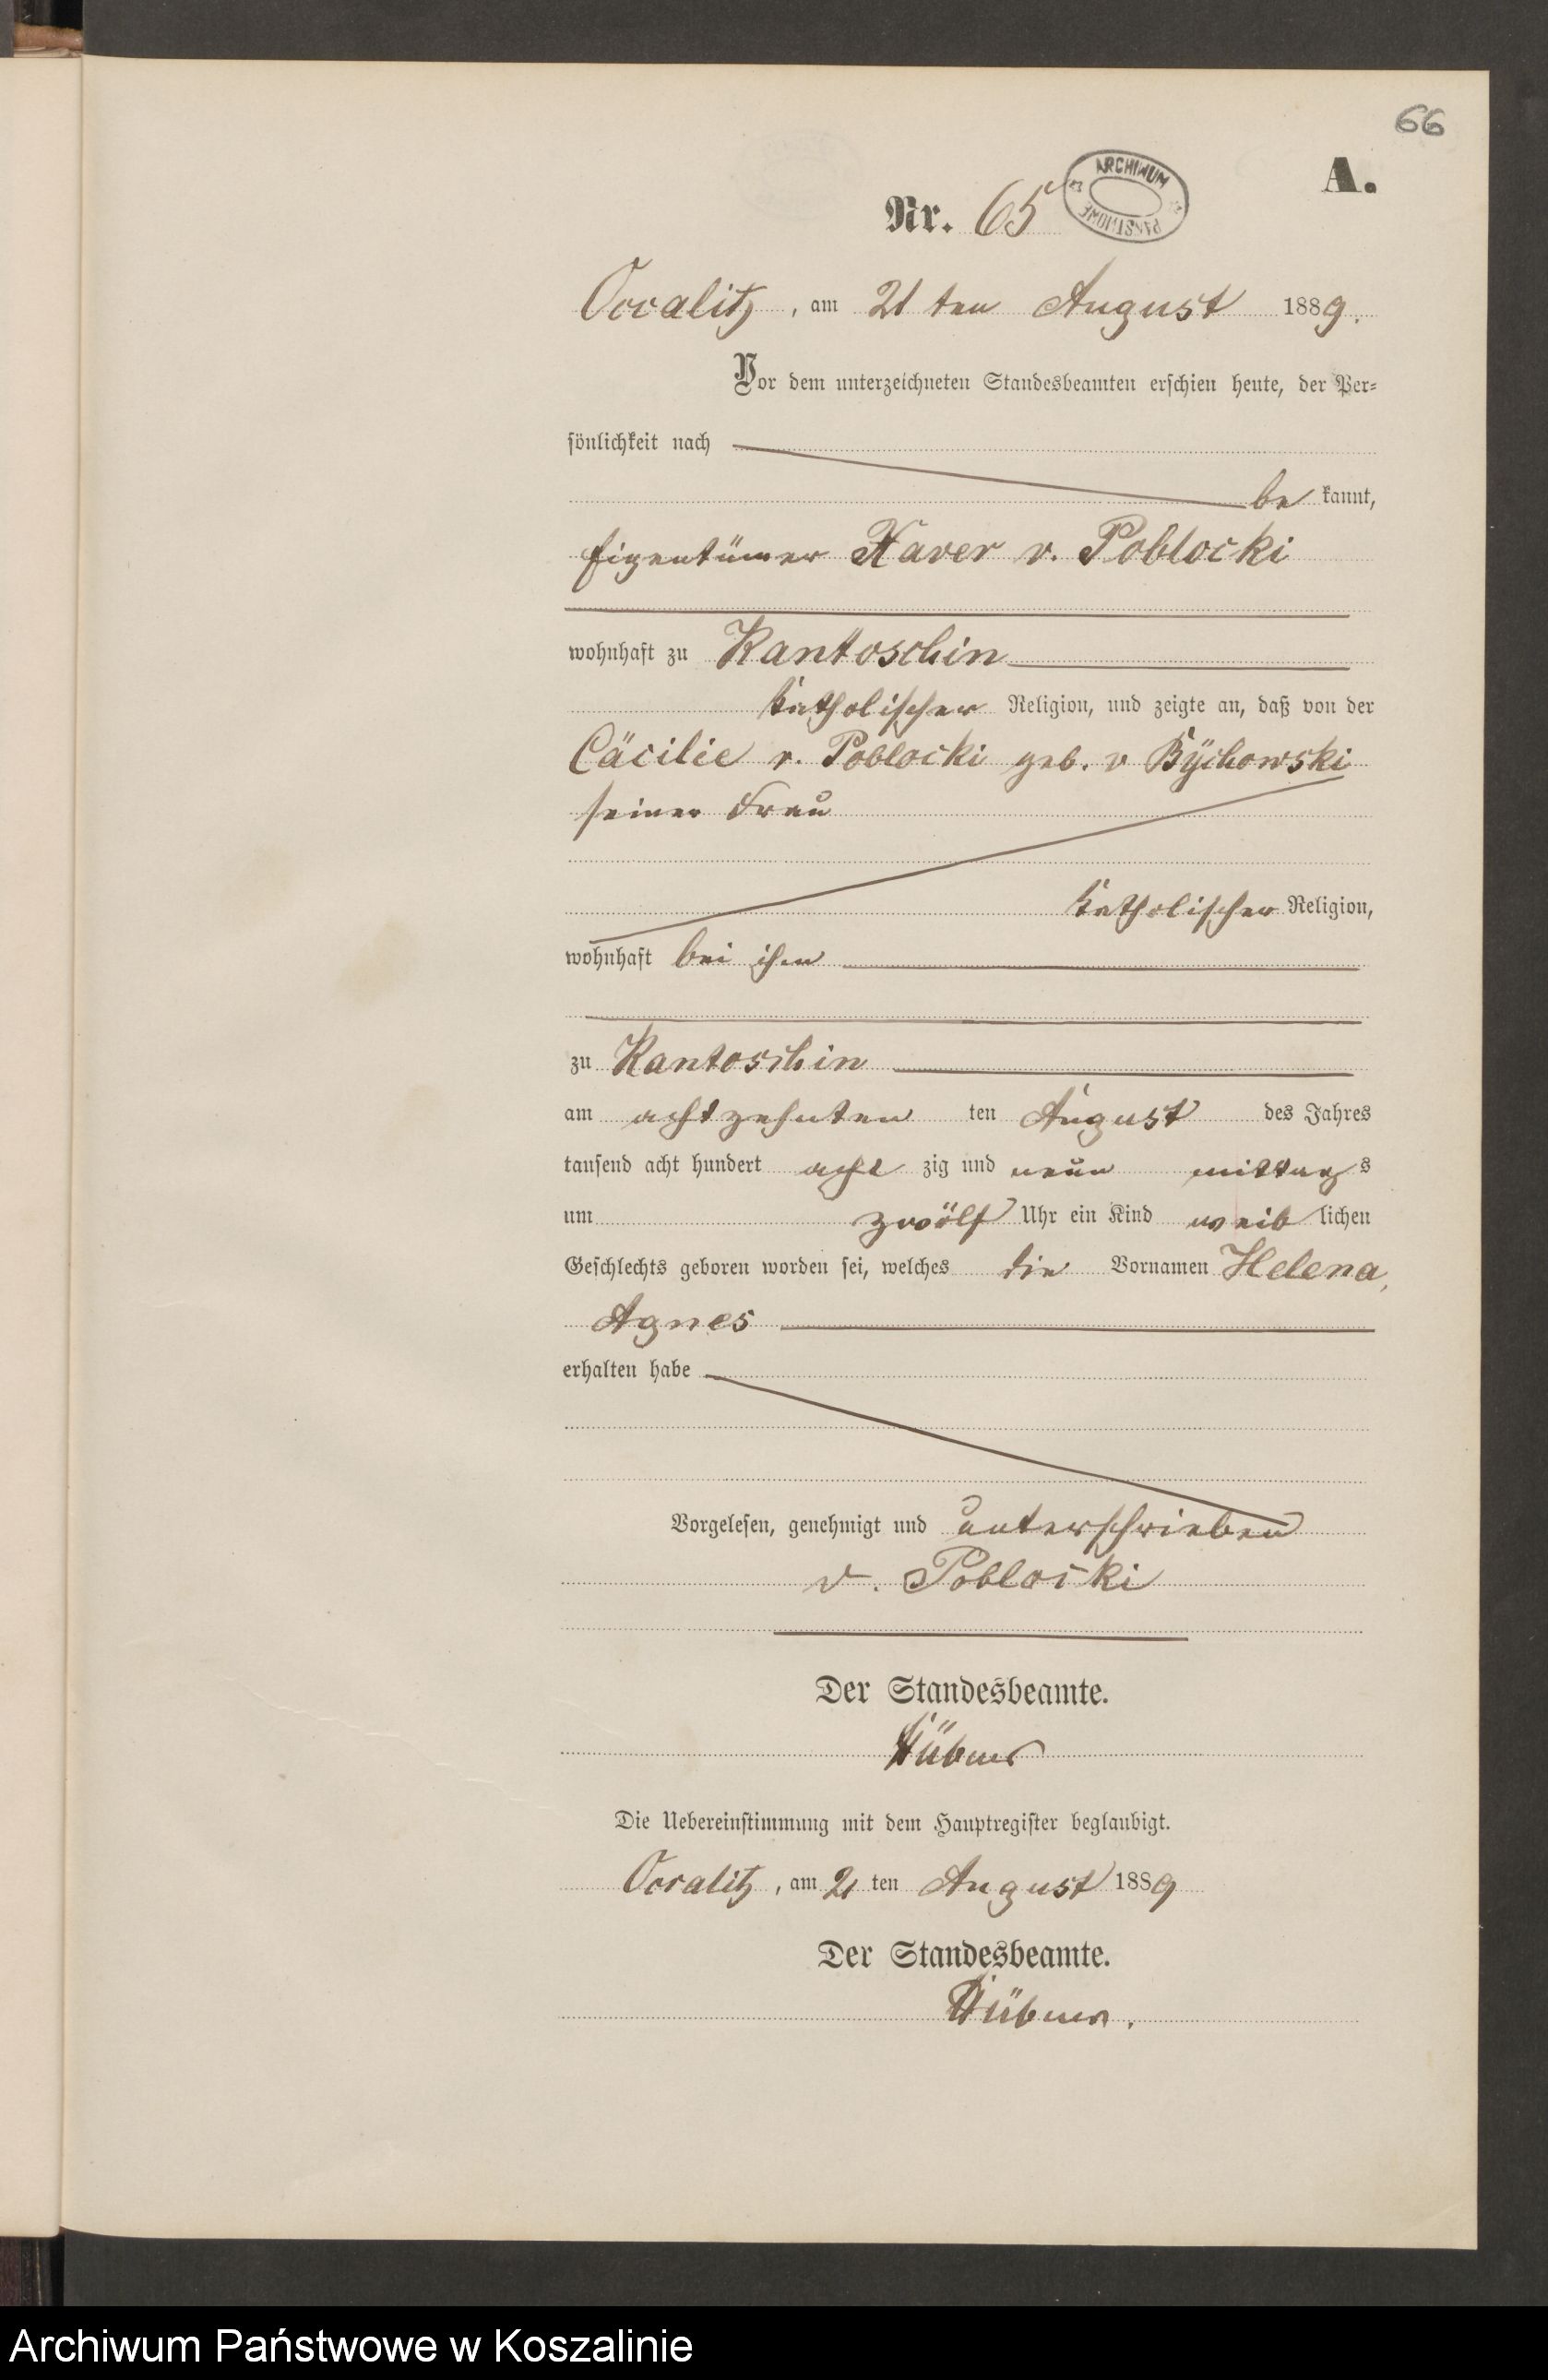 66
A.
Nr. 65
ARCHIWUM PAŃSTWOWE
Occalitz, am 21 ten August 1889.
Vor dem unterzeichneten Standesbeamten erschien heute, der Per-
sönlichkeit nach
be kannt,
Eigentümer Xaver v. Poblocki
wohnhaft zu Kantoschin
katholischer Religion, und zeigte an, daß von der
Cäcilie v. Poblocki geb. v Bÿchowski
seiner Frau
katholischer Religion,
wohnhaft bei ihm
zu Kantoschin
am achtzehnten ten August des Jahres
tausend acht hundert acht zig und neun mittag s
um zwölf Uhr ein Kind weib lichen
Geschlechts geboren worden sei, welches die Vornamen Helena,
Agnes
erhalten habe
Vorgelesen, genehmigt und unterschrieben
v. Poblocki
Der Standesbeamte.
Hübner
Die Uebereinstimmung mit dem Hauptregister beglaubigt.
Occalitz, am 21 ten August 1889
Der Standesbeamte.
Hübner.
Archiwum Państwowe w Koszalinie